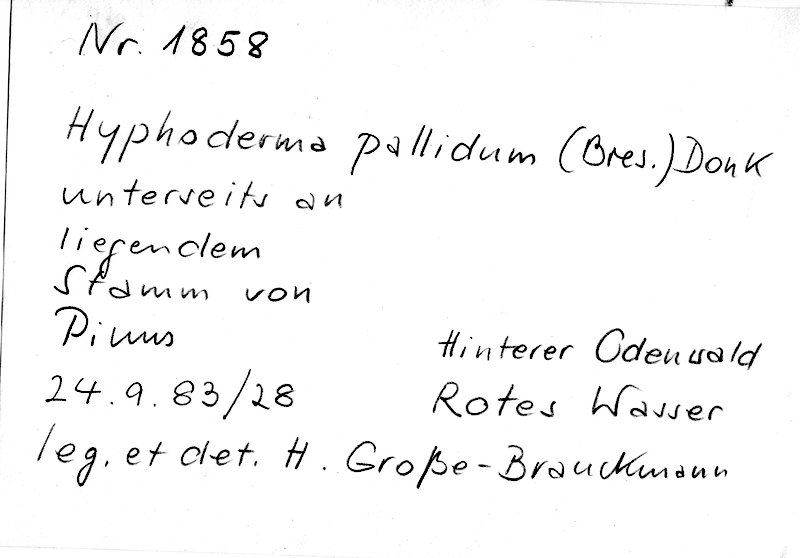 Nr. 1858
Hyphoderma pallidum (Bres.) Donk
unterseits an
liegendem
Stamm von
Pinus
Hinterer Odenwald
24.9.83/28
Rotes Wasser
leg. et det. H. Große-Brauckmann